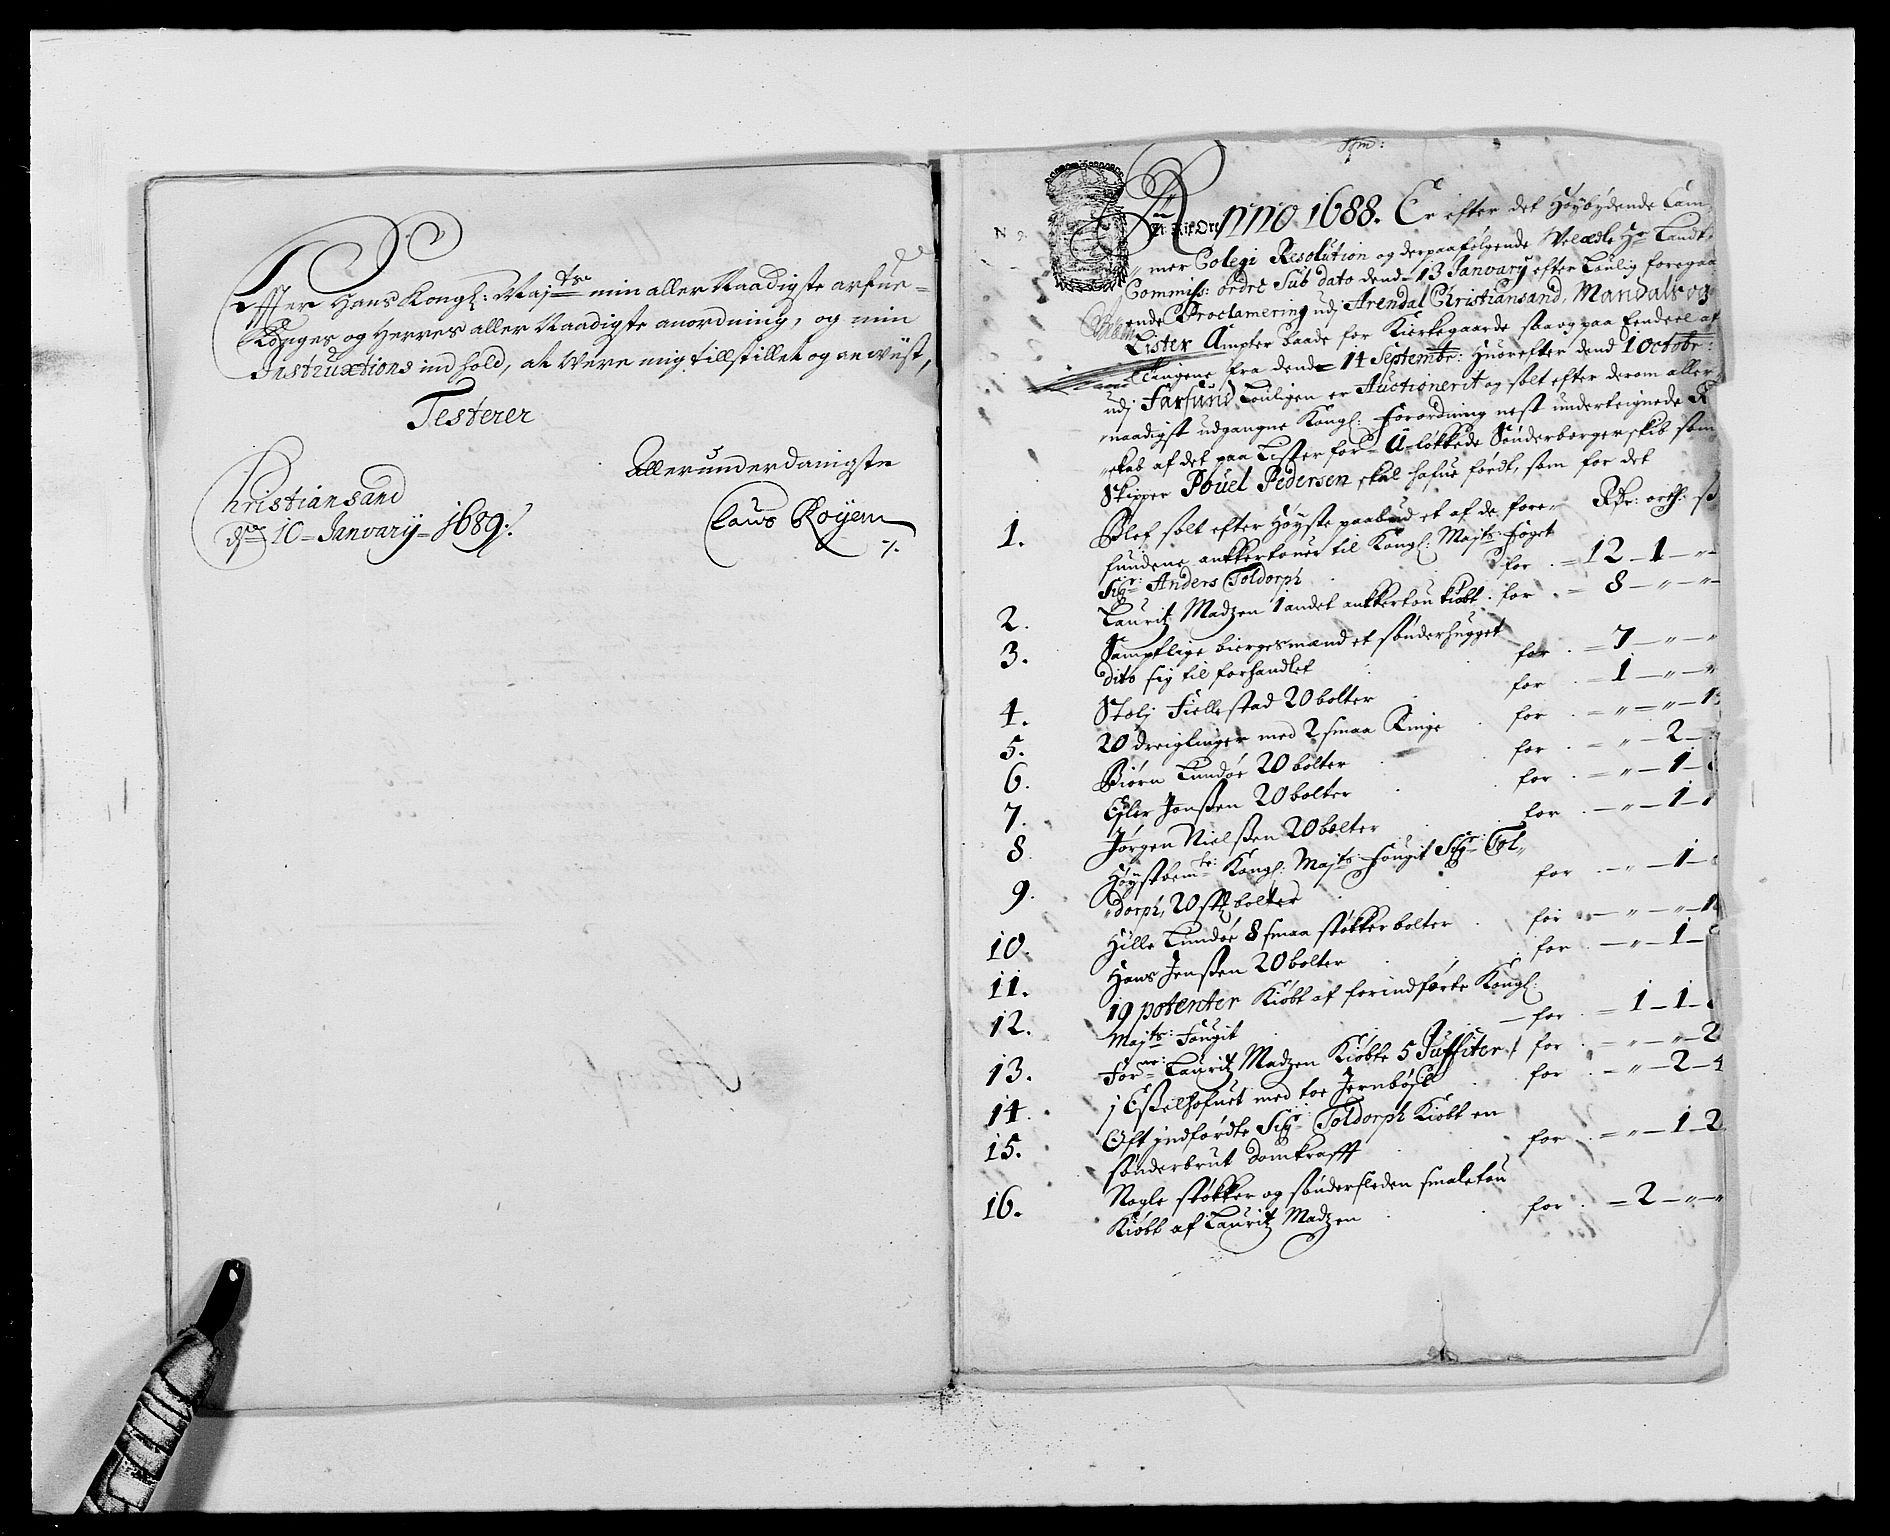 Effter Hans Kongl: Maj:ts min aller Naadigste arfue-
Konges og Herres aller Naadigste anordning, og min
Instruxtions ind hold, at Were mig tillstillet og anwiist,
Testerer
Christiansand
d: 10 Januarij 1689.
Allerunderdanigste
Claus Røyem
N 2.
Anno 1688. Er efter det Høybydende Cam„
„mer Colegi Resolution og derpaafølgende Velædle Hr Landt
Commiss: ordre Sub dato dend 13 January efter Laulig foregaa
ende Proclamering udj Arendal Christiansand, Mandals og
Lister Ampter baade for Kierkegaarde saa og paa Eendeel af
Tingene fra dend 14 Septembr: Huorefter dend 1 Octobr:
udj Farsund Louligen er Auctionerit og solt efter derom aller
naadigst udgangne Kongl: Forordning nest underteignede R
„skab af det paa Lister for U-løkkede Sønderborger skib som
Skipper Pouel Pedersen skal hafue fördt, som for det
Rdr: orth: ß
1. Blef solt efter Høyste paabud et af de fore„
fundene ankkertouer til Kongl: Majts: Foget
Sigr: Anders Toldorph for = 12 – 1 – „
2. Lauritz Madzen 1 andet ankkertou kiøbt for = 8 – „ – „
3. Sampflige biergesmænd et sønderhugget
dito sig til forhandlet for = 7 – „ – „
4. Stoli Fiellestad 20 bolter for = 1 – „ – „
5. 20 dreiglinger med 2 smaa Ringe for = „ – „ – 1
6. Biørn Lundøe 20 bolter for = „ – 2 –
7. Efler Jonßen 20 bolter for = „ – 1 –
8. Jørgen Nielßen 20 bolter for – „ – 1 –
9. Høystbem:te Kongl: Majts: Fougit Sigr Tol„
„dorph, 20 st bolter for – „ – 1 –
10. Hille Lundøe 8 smaa støkker bolter for – „ – „ – 1
11. Hans Jenßen 20 bolter for – „ – 1 –
12. 19 potenter Kiøbt af forindførte Kongl:
Majts: Fougit for = 1 – 1 –
13. For:ne: Lauritz Madzen Kiøbte 5 Puffiter for = „ – „ – 2
14. j Eßelhofuet med toe Jernbøsle for = „ – 2 – 4
15. Oft indførdte Sigr: Toldorph Kiøbt en
sønderbrut domkrafft for = „ – 1 – 2
16. Nogle støkker og søndersleden smaletou
Kiøbt af Lauritz Madzen for = 2 – „ – „